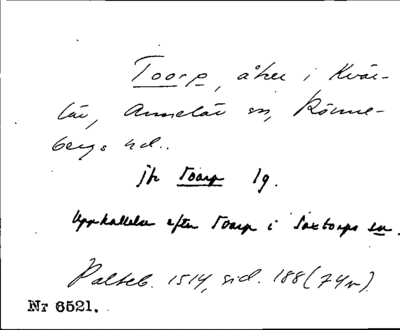 Toorp, åker i Kvär-
löv, Annelöv sn, Rönne-
bergs hd..
jfr Toarp 1g.
Uppkallelse efter Toarp i Saxtorps sn.
Palteb. 1514, sid. 188 (74v).
Nr 6521.